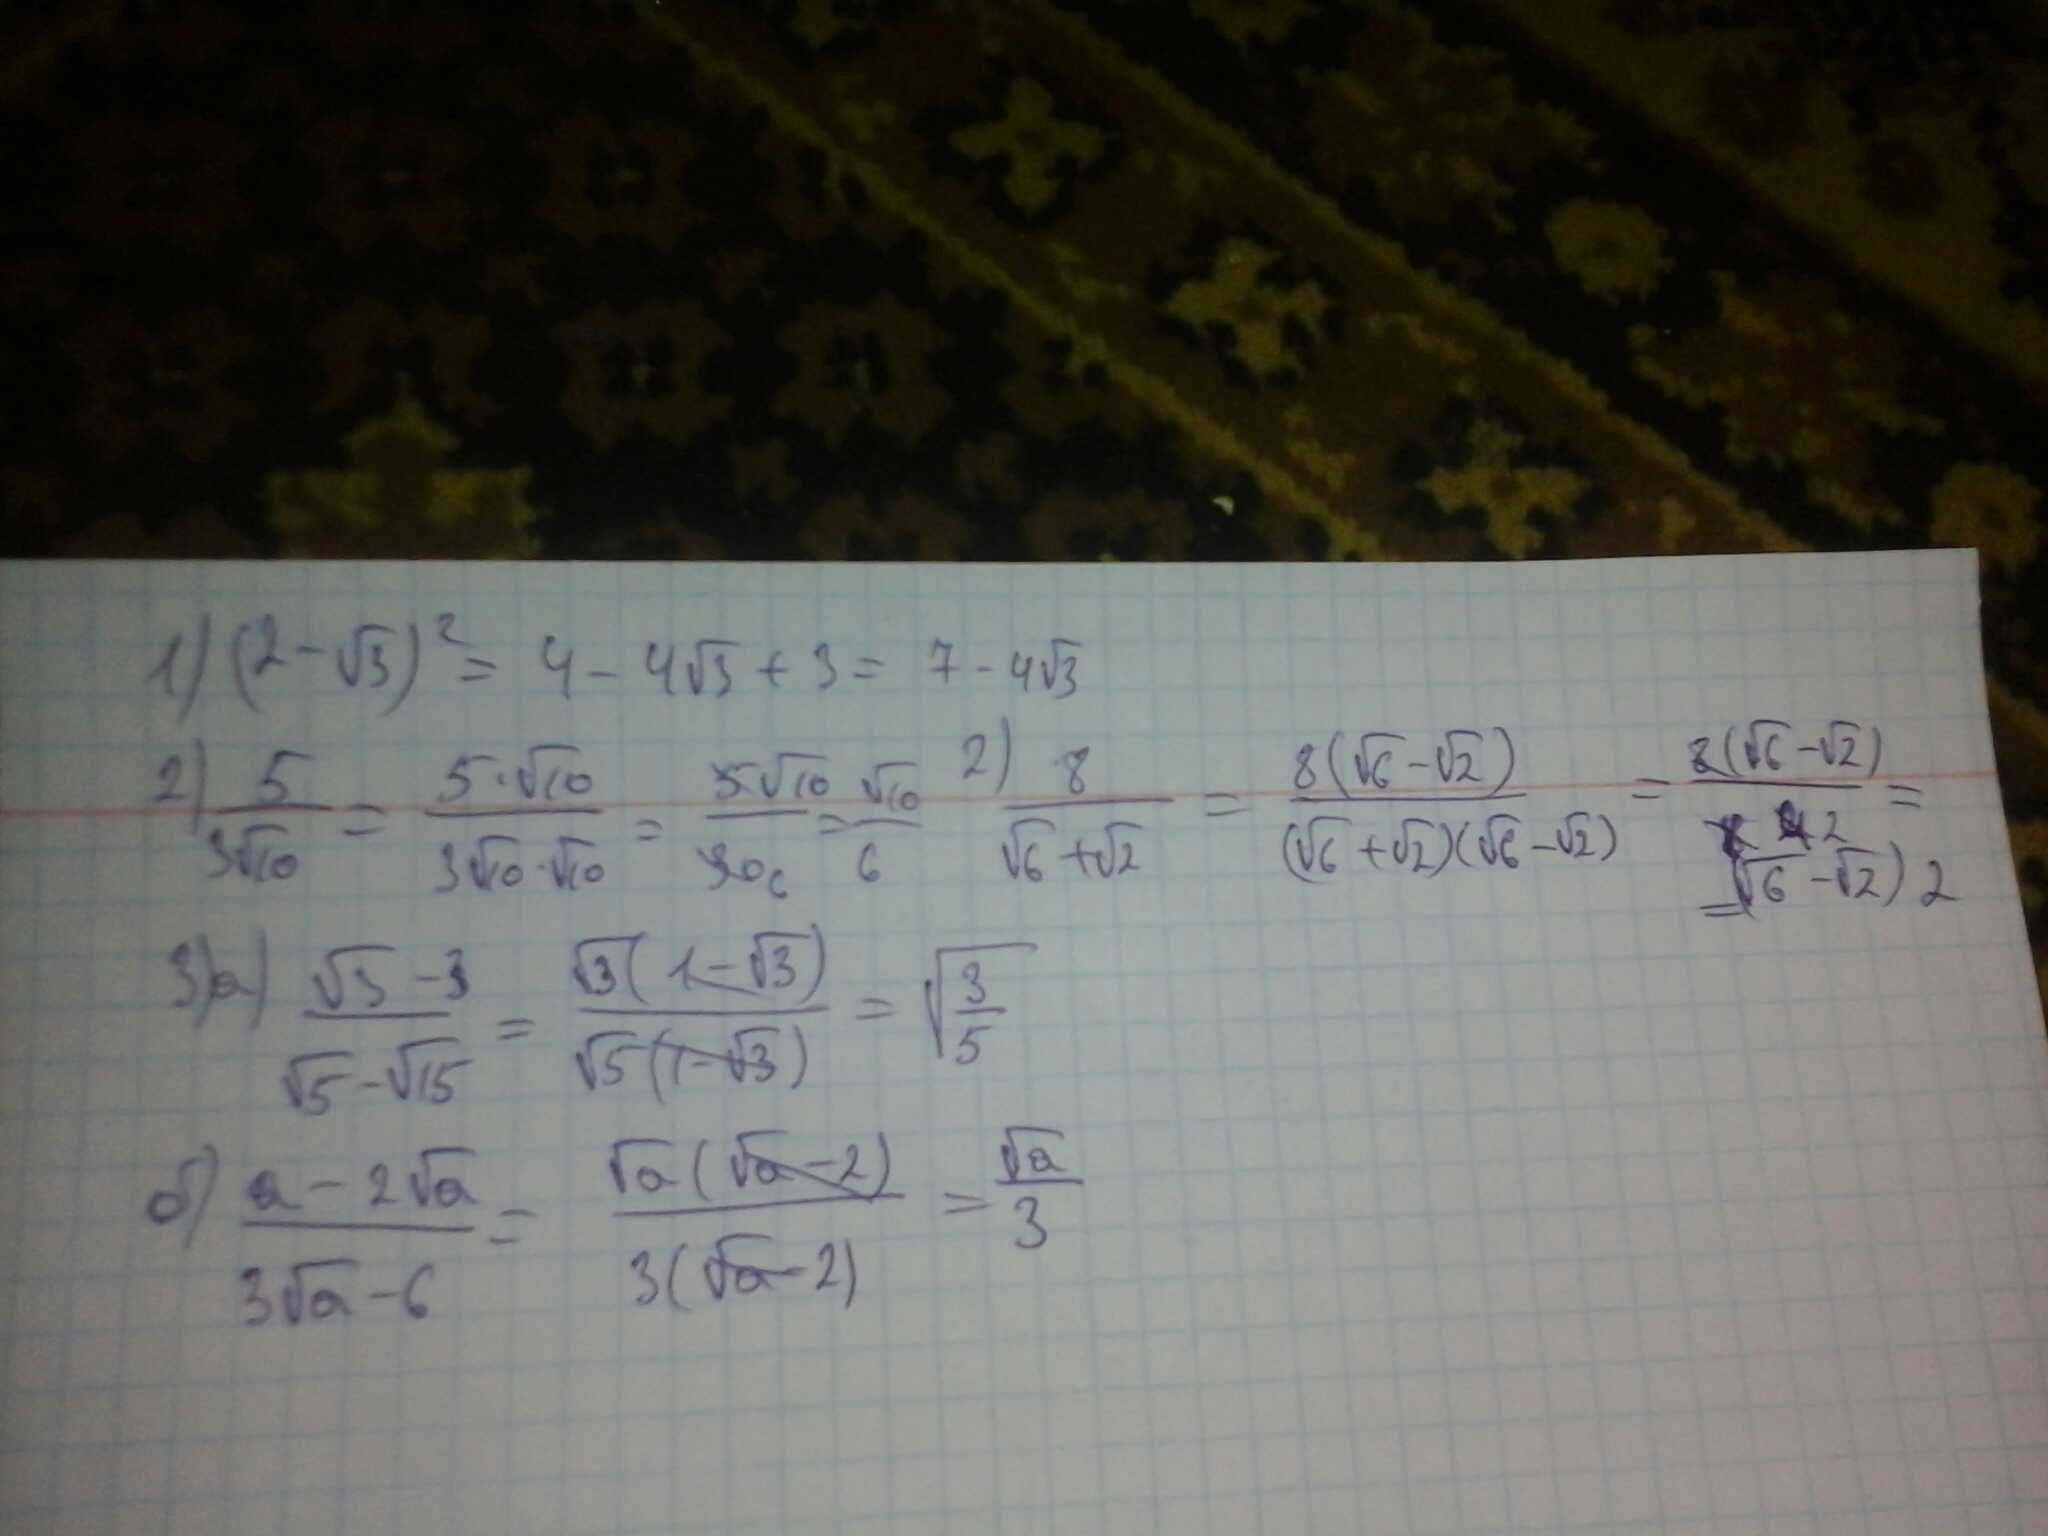 1) (2-√3)² = 4 - 4√3 + 3 = 7 - 4√3
2) 5/(3√10) = (5·√10)/(3√10·√10) = (5√10)/(30 6) = √10/6 2) 8/(√6+√2) = 8(√6-√2)/((√6+√2)(√6-√2)) = 8(√6-√2)/(4 2) =
= (√6-√2) 2
3) а) (√3-3)/(√5-√15) = √3(1-√3)/(√5(1-√3)) = √(3/5)
б) (a-2√a)/(3√a-6) = √a(√a-2)/(3(√a-2)) = √a/3